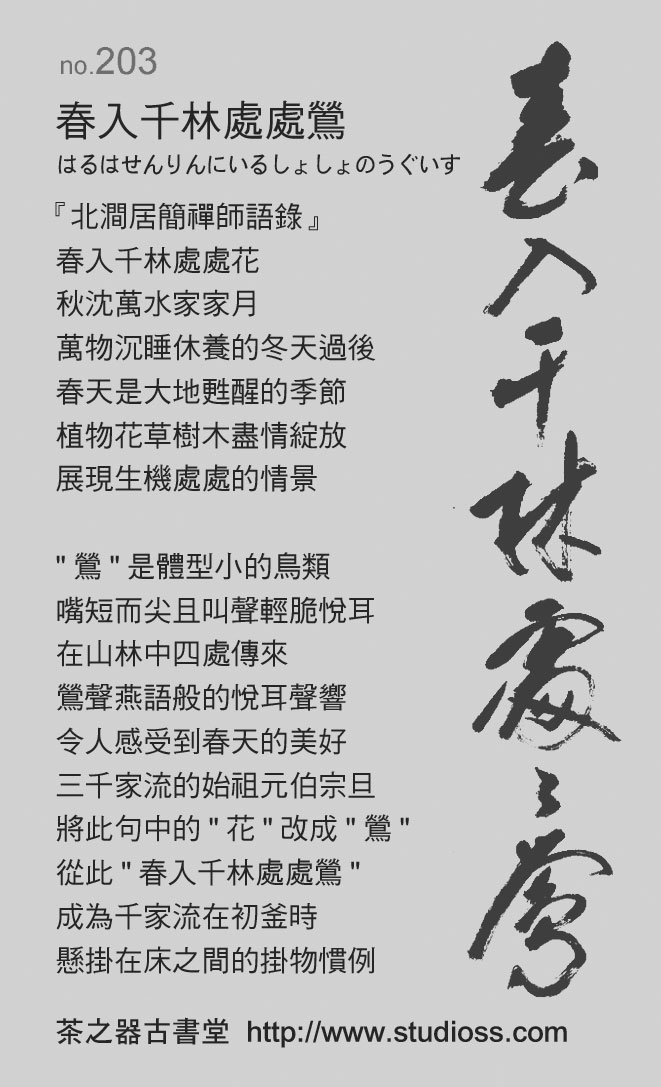 no.203
春入千林處處鶯
はるはせんりんにいるしょしょのうぐいす
『北澗居簡禪師語錄』
春入千林處處花
秋沈萬水家家月
萬物沉睡休養的冬天過後
春天是大地甦醒的季節
植物花草樹木盡情綻放
展現生機處處的情景
"鶯"是體型小的鳥類
嘴短而尖且叫聲輕脆悅耳
在山林中四處傳來
鶯聲燕語般的悅耳聲響
令人感受到春天的美好
三千家流的始祖元伯宗旦
將此句中的"花"改成"鶯"
從此"春入千林處處鶯"
成為千家流在初釜時
懸掛在床之間的掛物慣例
茶之器古書堂 http://www.studioss.com
春入千林處〻鶯